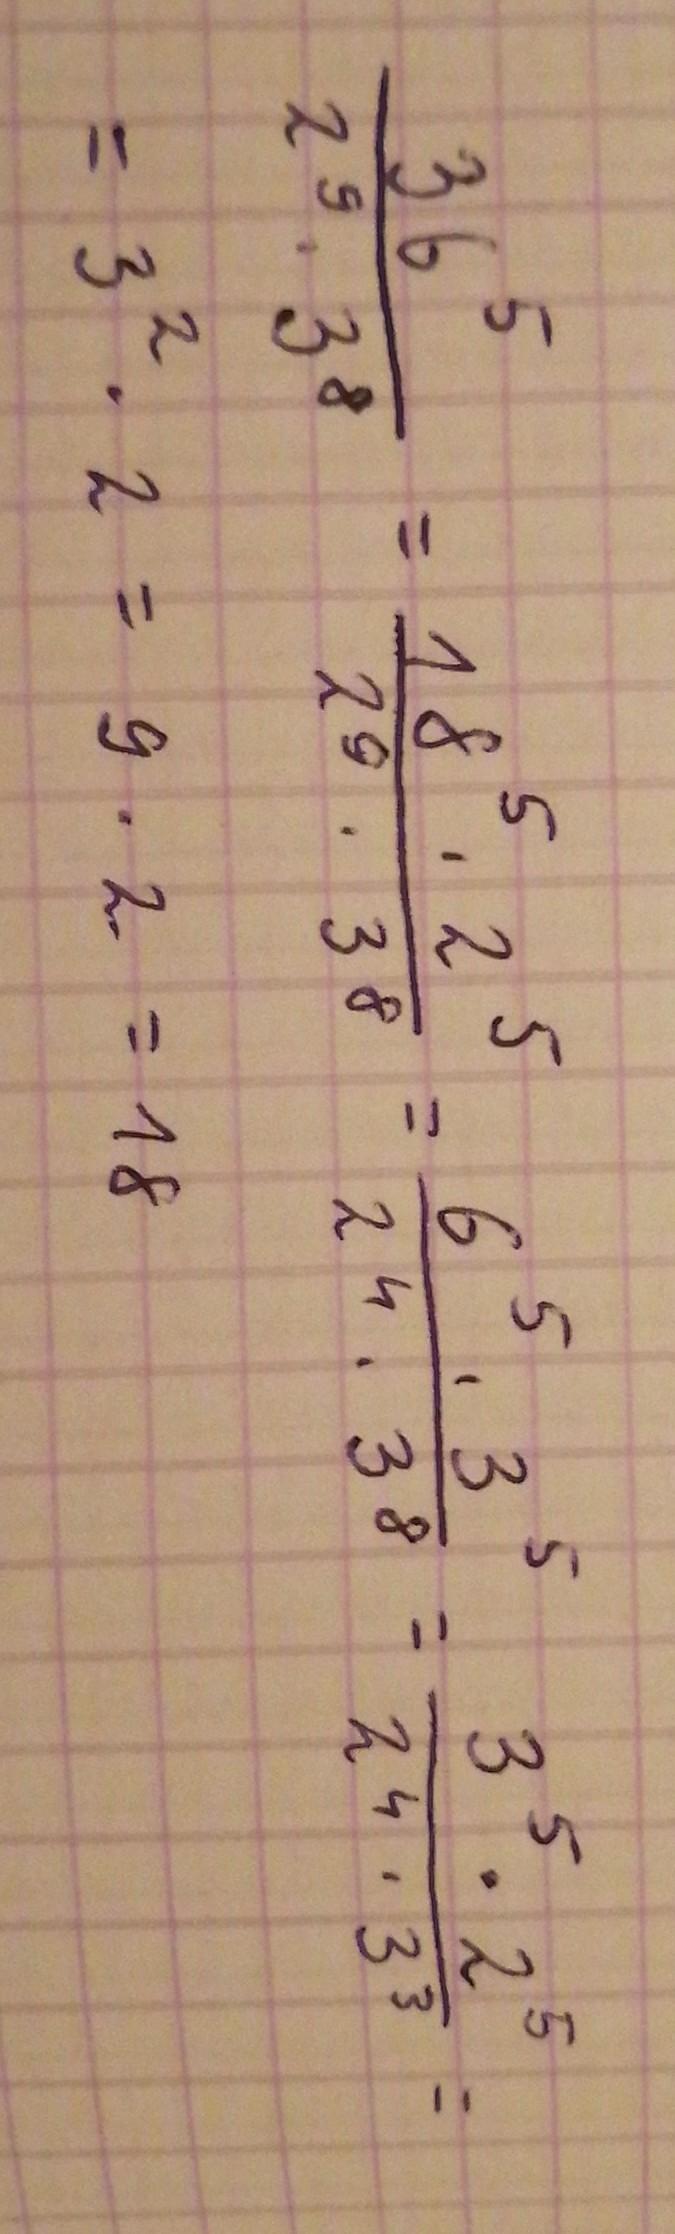 36⁵ / (2⁹ · 3⁸) = (18⁵ · 2⁵) / (2⁹ · 3⁸) = (6⁵ · 3⁵) / (2⁴ · 3⁸) = (3⁵ · 2⁵) / (2⁴ · 3³) =
= 3² · 2 = 9 · 2 = 18